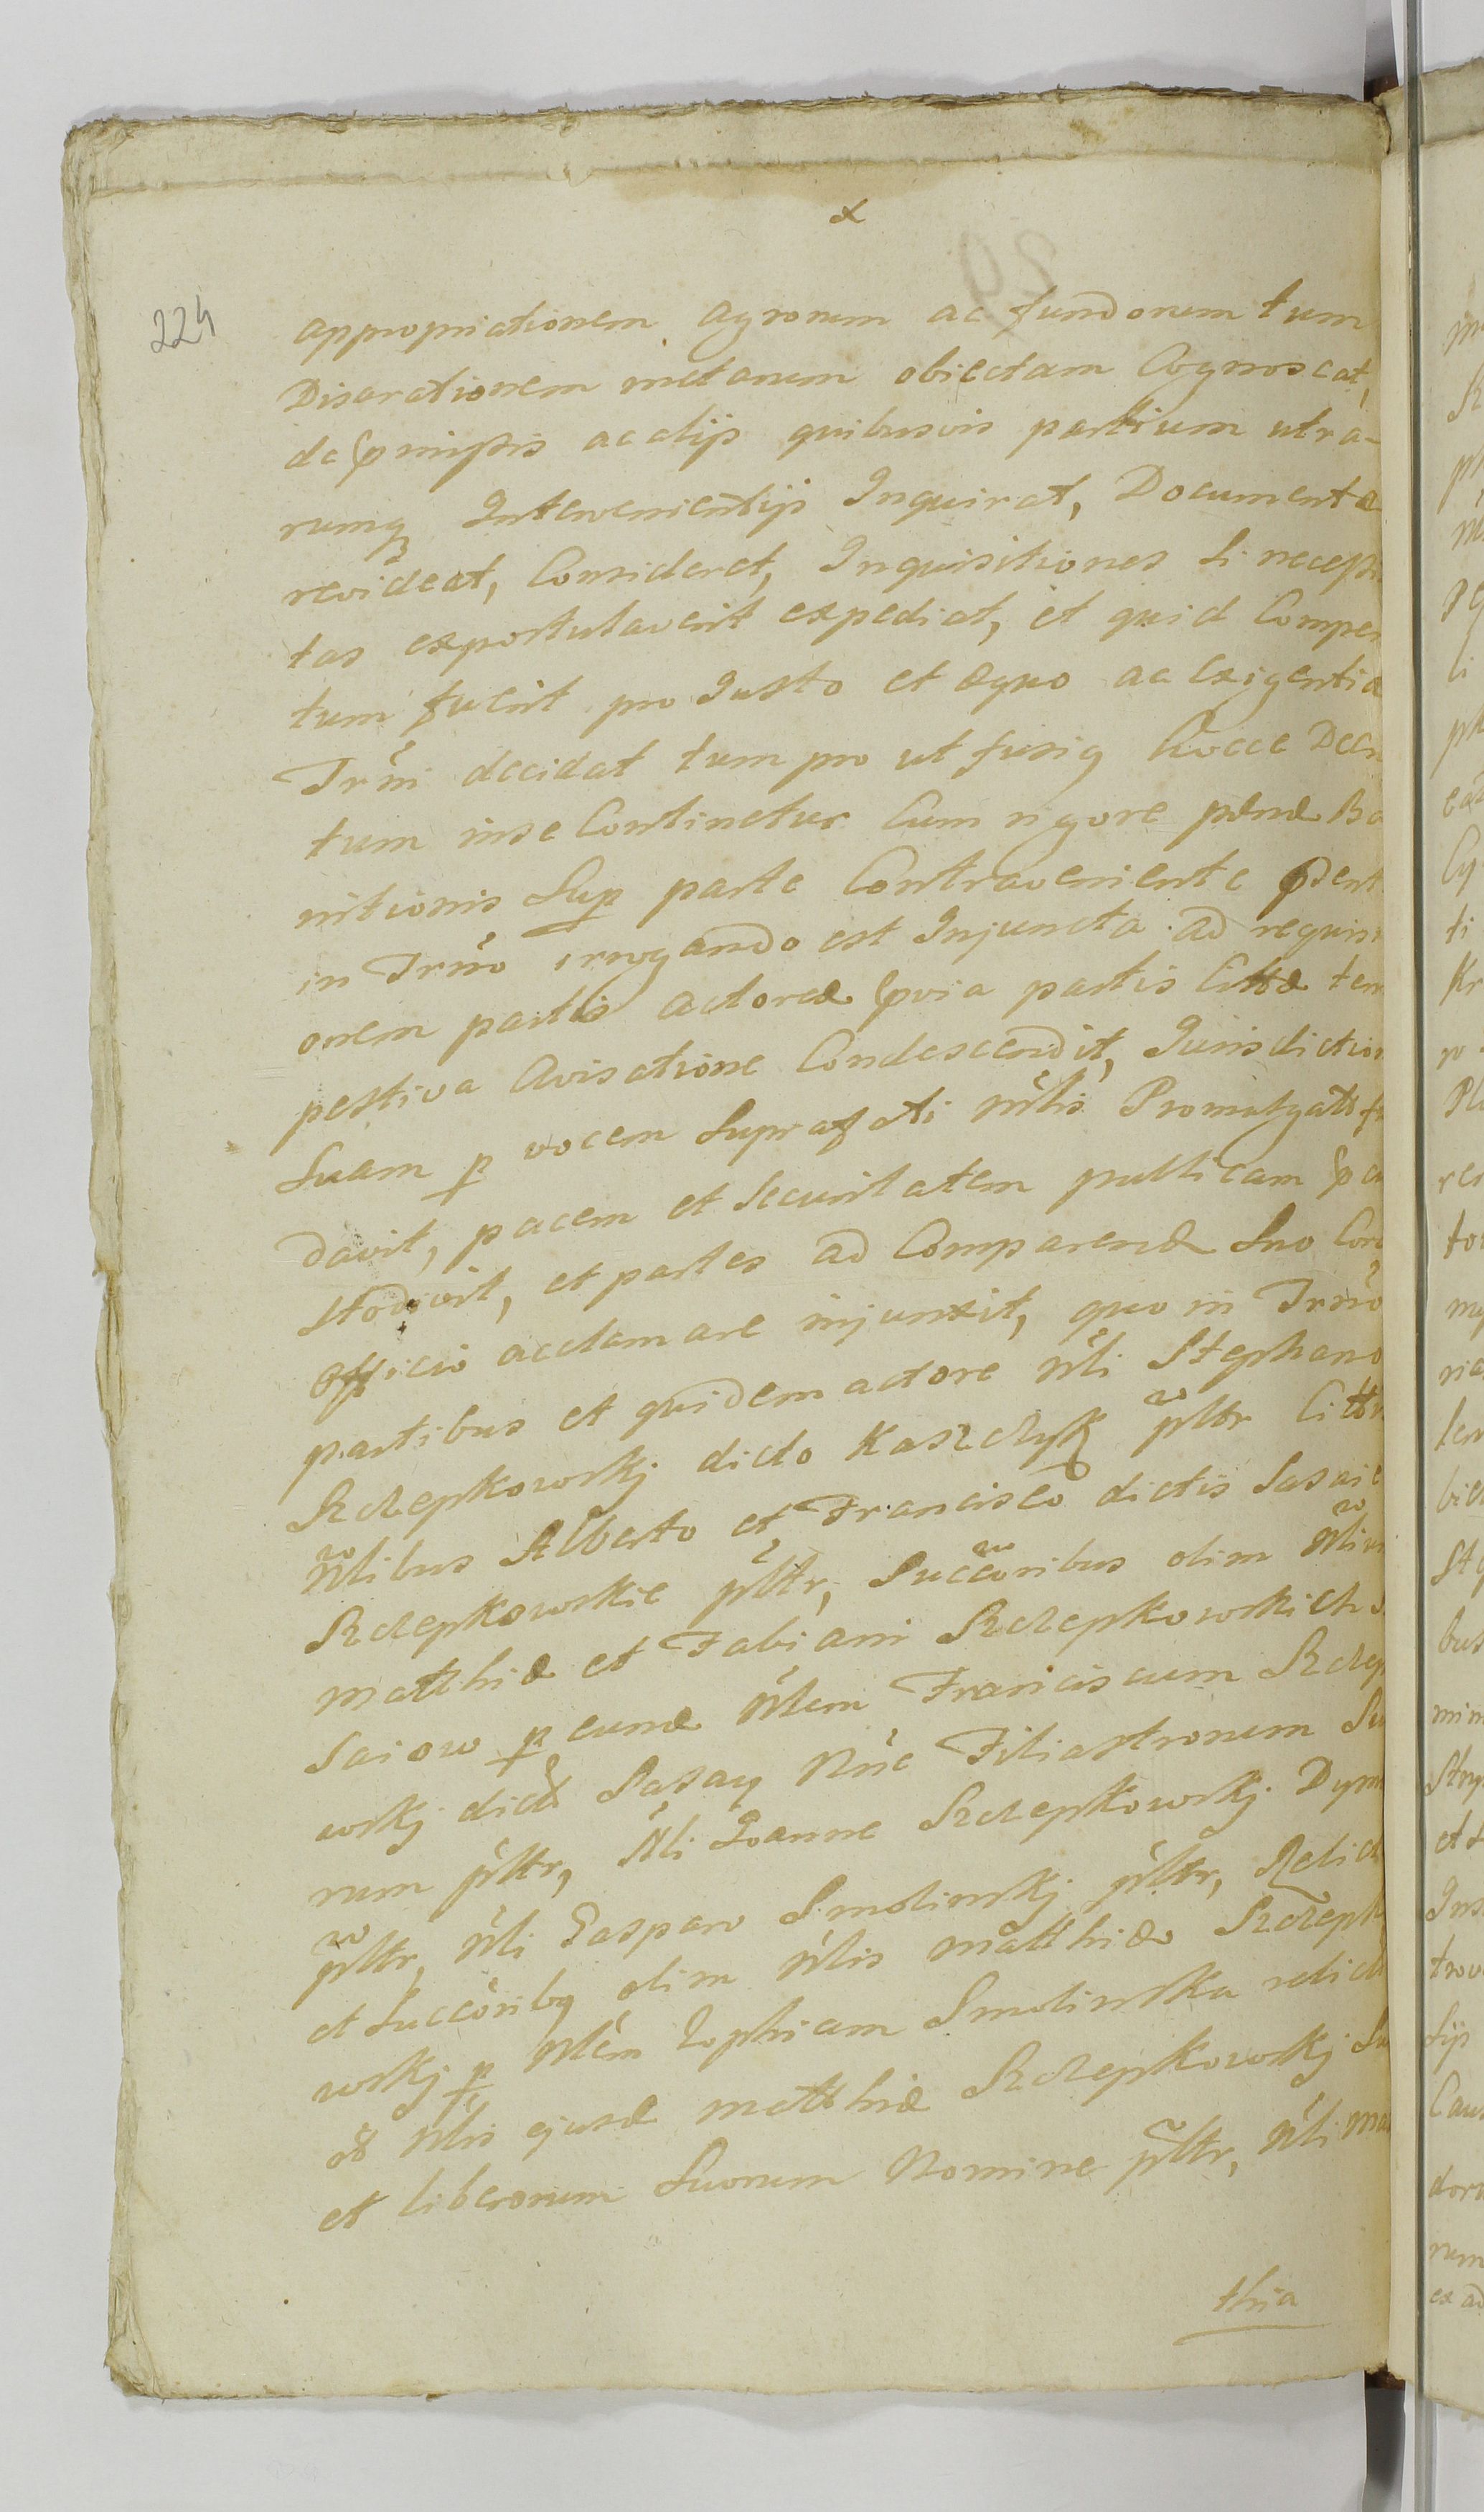 224
appropriationem agrorum ac fundorum tum
Disarationem metarum obiectam Cognoscat,
de pmissis ac alijs quibusvis partium utra-
rumq Intervenientijs Inquirat, Documenta
revideat, Consideret, Inquisitiones Si necessi
tas expostulaverit expediat, et quid Comper
tum fuerit pro Justo et æquo ac exigentia
Trñi decidat tum pro ut fusig hocce Decr
tum inse Continetur Cum rigore pænæ Ba
nitionis Sup parte Contraveniente pdent
in Trño irrogando est Injuncta ad requisi
onem partis actoreæ pvia partis Cittæ tem
pestiva Avisatione Condescendit, Jurisdiction
Suam p vocem Supra Nlis Promulgatt fu
davit, pacem et Securitatem publicam
stodivit, et partes ad Comparend Suo Cora
officio acclamare injunxit, quo in Trño
partibus et quidem actore Nli Stephano
Szczepkowskj dicto Kaszczyk psltr Citt
Nlibus Alberto et Francisco dictis Sasai
Szczepkowskie psltr, Succoribus olim Nliu
Matthiæ et Fabiani Szczepkowskich
Saiow p eund Nlem Franciscum Szczep
wskj dict Sasay Nñe Filiastrorum Su
rum psltr, Nli Joanne Szczepkowskj Dym
psltr, Nli Gasparo Smolinskj psltr, Relict
et Succoribq olim Nlis Matthiæ Szczepk
wskj p Nlem Zophiam Smolinska relict
Nlis ejusd Matthiæ Szczepkowskj Su
et liberorum Suorum Nomine psltr, Nli Mat
thia